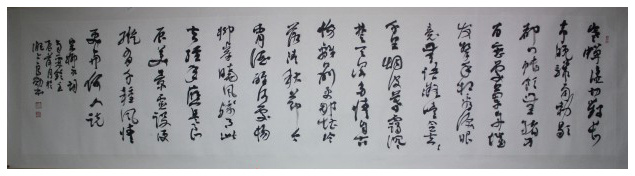 寒蟬淒切對長
亭晚驟雨初歇
都門帳飲無緒方
留戀處蘭舟催
發執手相看淚眼
竟無語凝噎念去去
千里烟波暮靄沉沉
楚天闊多情自古
傷離別更那堪冷
落清秋節今
宵酒醒何處楊
柳岸曉風殘月此
去經年應是良
辰美景虛設便
縱有千種風情
更與何人說